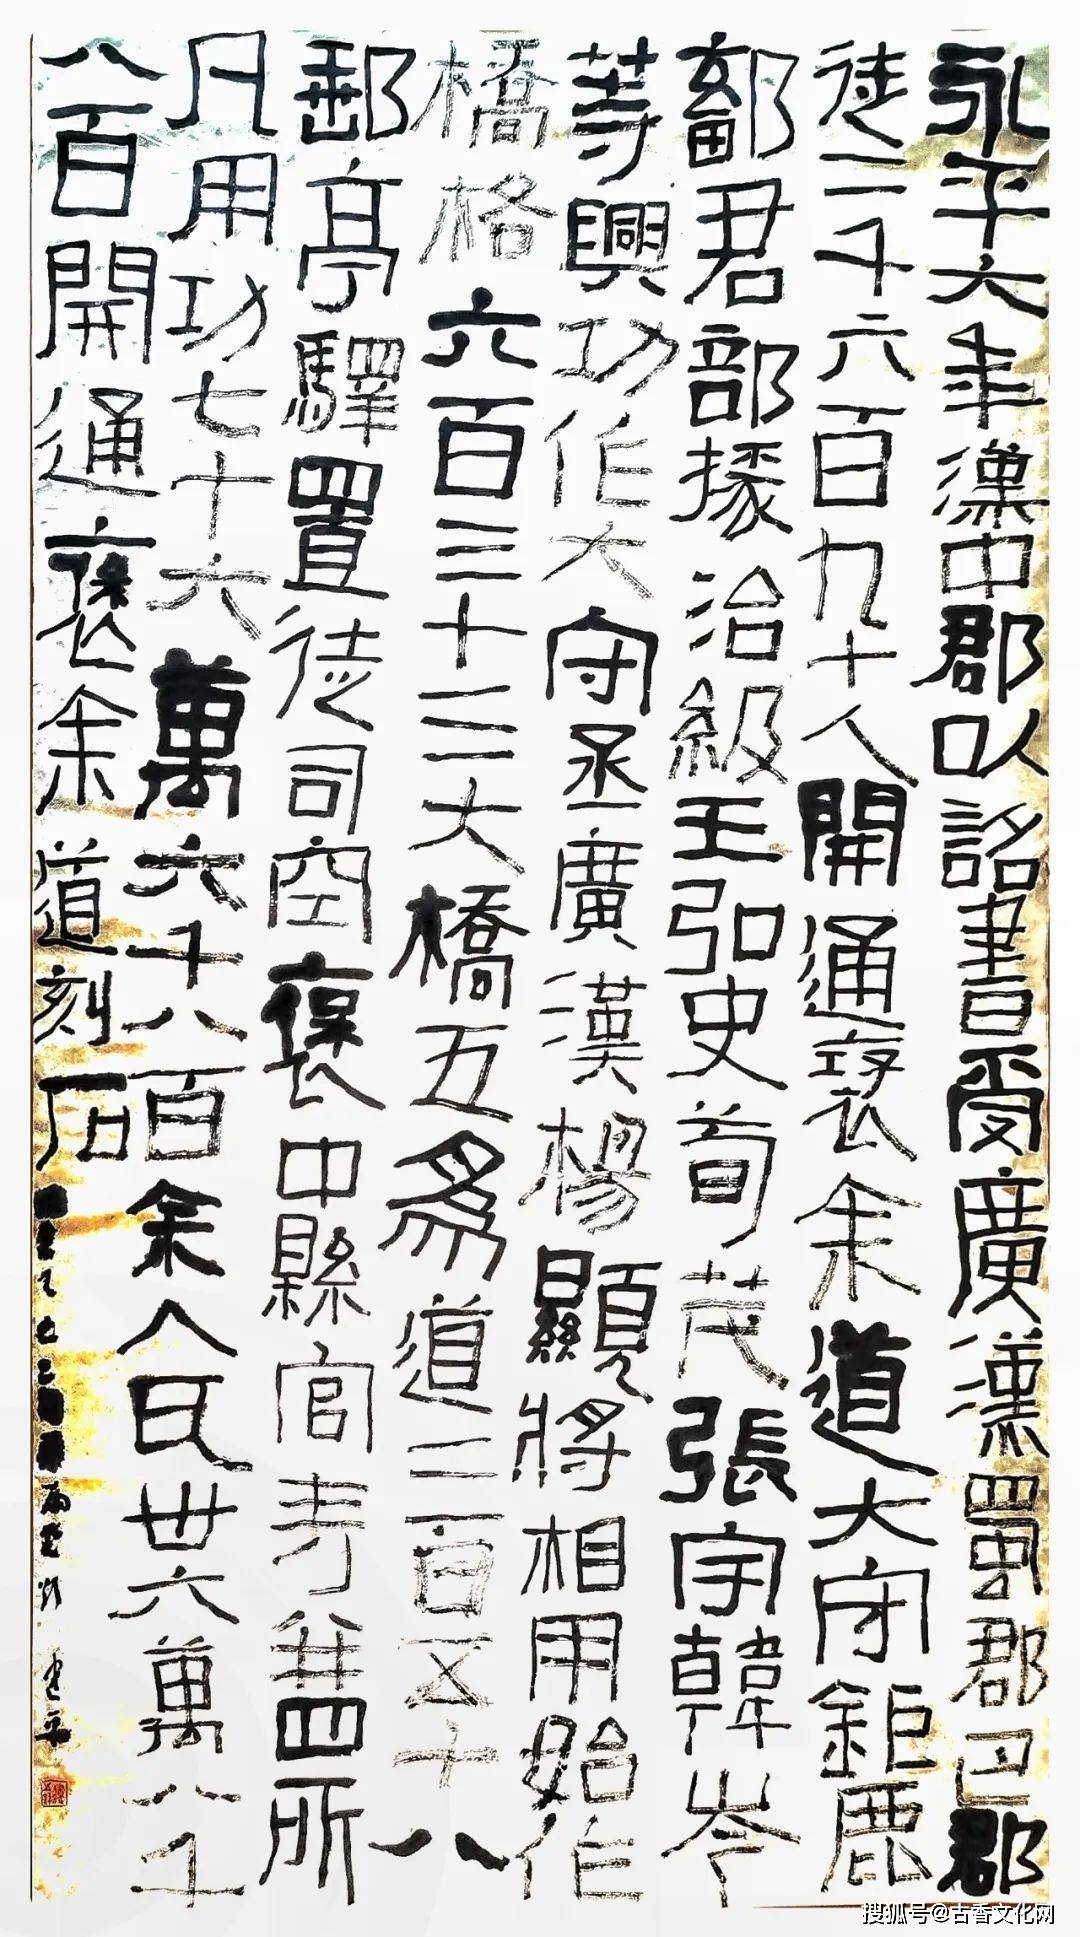 永平六年漢中郡以詔書受廣漢蜀郡巴郡
徒二千六百九十人開通褒余道大守鉅鹿
鄐君部掾治級王弘史荀茂張宇韓岑
等興功作大守丞廣漢楊顯將相用始作
橋格六百三十三大橋五為道二百五十八
郵亭驛置徒司空褒中縣官寺并四所
凡用功七十六萬六千八百余人瓦卅六萬八千
八百開通褒余道刻石
乙巳
搜狐号@古香文化网